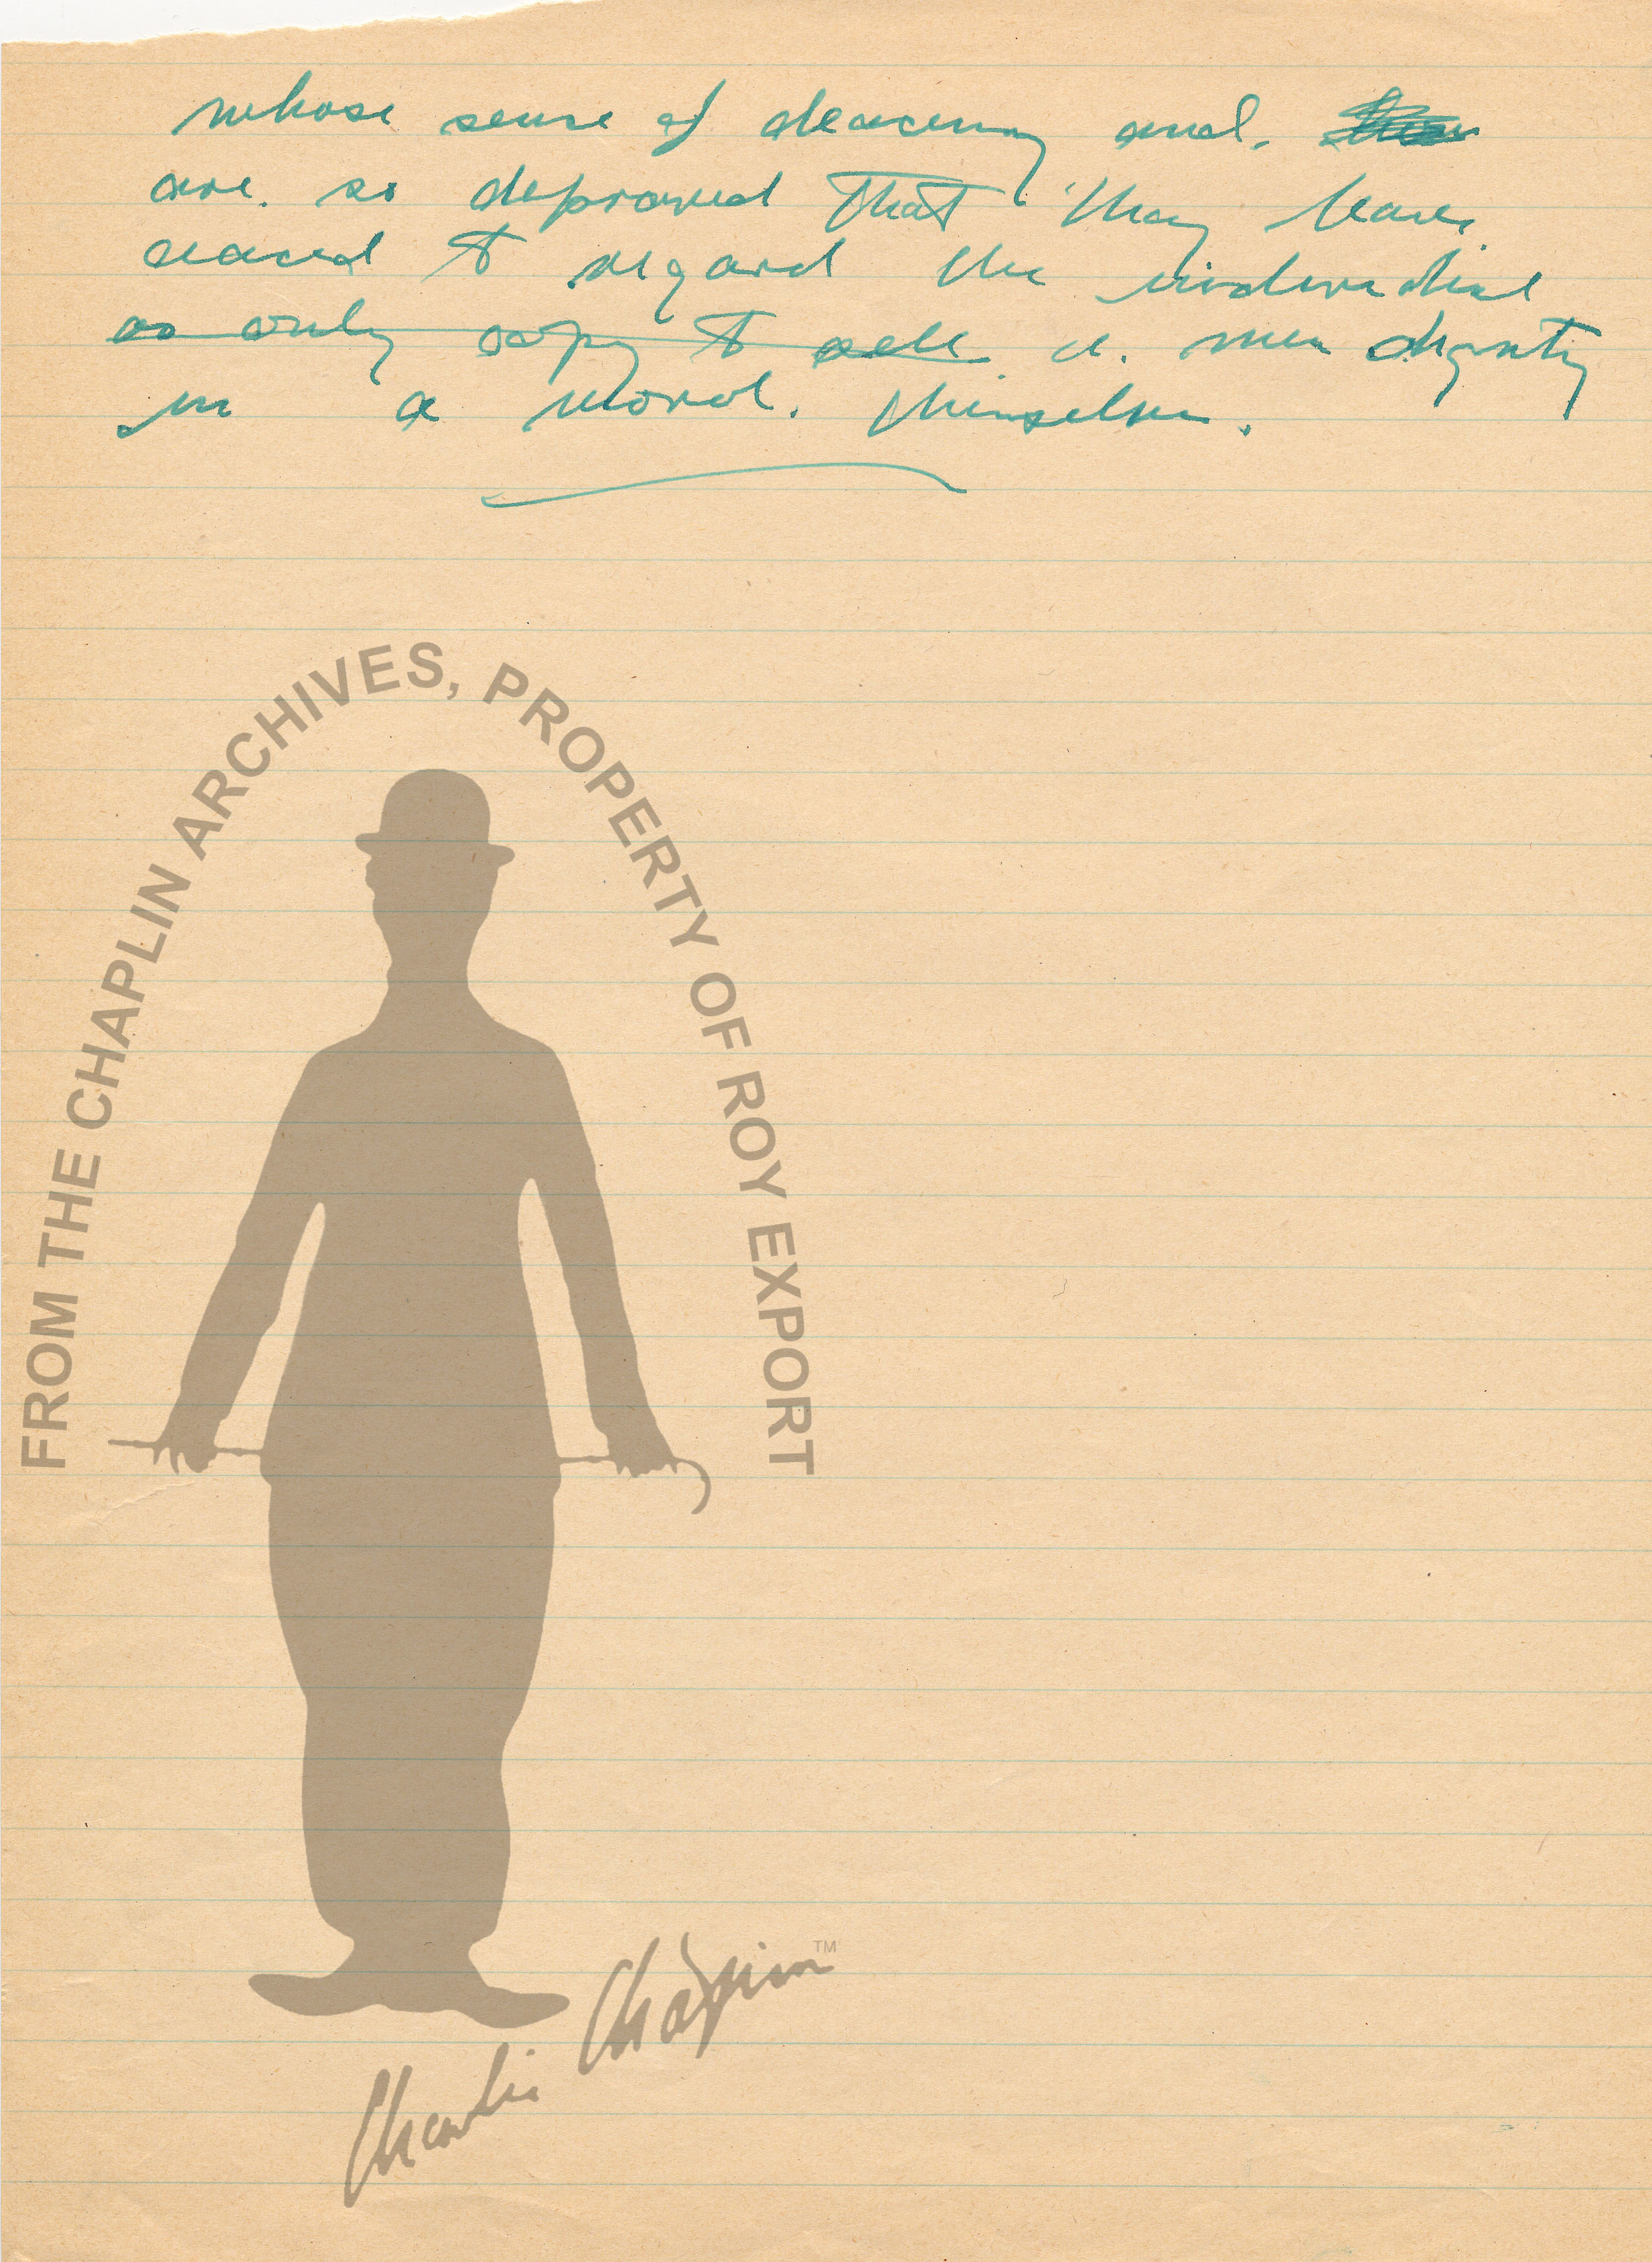 whose sense of deacency and.
are. so depraved that they have
ceaced to regard the individual
as only copy to sell a. men dignity
in a moral.
FROM THE CHAPLIN ARCHIVES, PROPERTY OF ROY EXPORT
Charlie Chaplin TM